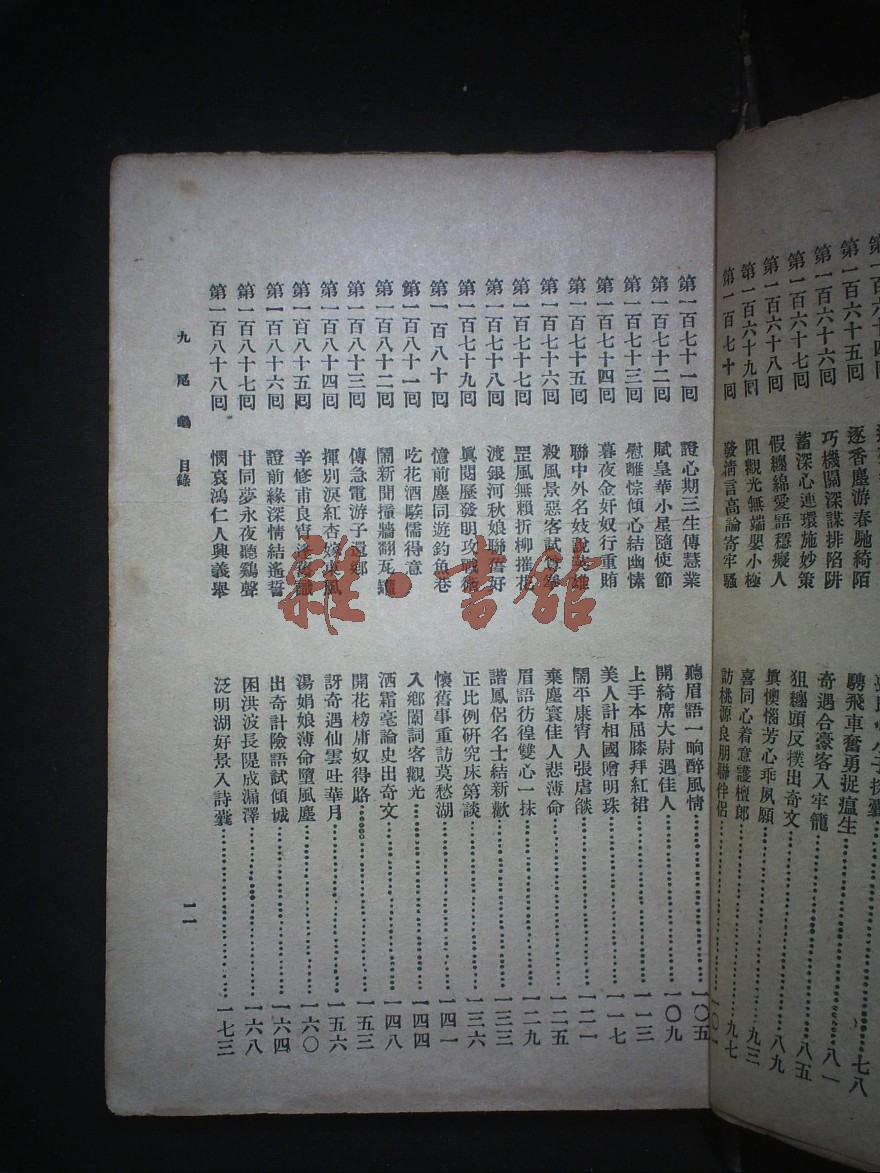 第一百六十四回
第一百六十五回 逐香塵游春馳綺陌 騁飛車奮勇捉瘟生……七八
第一百六十六回 巧機關深謀排陷阱 奇遇合豪客入牢籠……八一
第一百六十七回 蓄深心連環施妙策 狙纏頭反撲出奇文……八五
第一百六十八回 假纏綿愛語穩癡人 眞懊惱芳心乖夙願……八九
第一百六十九回 阻觀光無端嬰小極 喜同心着意護檀郎……九三
第一百七十回 發清言高論寄牢騷 訪桃源良朋聯伴侶……九七
一〇一
第一百七十一回 證心期三生傳慧業 聽眉語一晌醉風情……一〇五
第一百七十二回 賦皇華小星隨使節 開綺席大尉遇佳人……一〇九
第一百七十三回 慰離悰傾心結幽愫 上手本屈膝拜紅裙……一一三
第一百七十四回 暮夜金奸奴行重賄 美人計相國贈明珠……一一七
第一百七十五回 聯中外名妓說英雄 鬧平康宵人張虐燄……一二一
第一百七十六回 殺風景惡客試老拳 棄塵寰佳人悲薄命……一二五
第一百七十七回 罡風無賴折柳摧花 眉語彷徨雙心一抹……一二九
第一百七十八回 渡銀河秋娘聯舊好 諧鳳侶名士結新歡……一三三
第一百七十九回 眞閱歷發明攻戰術 正比例硏究床第談……一三六
第一百八十回 憶前塵同遊釣魚巷 懷舊事重訪莫愁湖……一四一
第一百八十一回 吃花酒騃儒得意 入鄉闈詞客觀光……一四四
第一百八十二回 鬧新聞撞牆翻瓦罐 洒霜毫論史出奇文……一四八
第一百八十三回 傳急電游子還鄉 開花榜庸奴得賂……一五三
第一百八十四回 揮別淚紅杏嫁東風 訝奇遇仙雲吐華月……一五六
第一百八十五回 辛修甫良宵逢舊識 湯娟娘薄命墮風塵……一六〇
第一百八十六回 證前緣深情結遙誓 出奇計險語試傾城……一六四
第一百八十七回 甘同夢永夜聽鷄聲 困洪波長隄成漏澤……一六八
第一百八十八回 憫哀鴻仁人興義舉 泛明湖好景入詩囊……一七三
九尾龜 目錄 一一
雜·書館